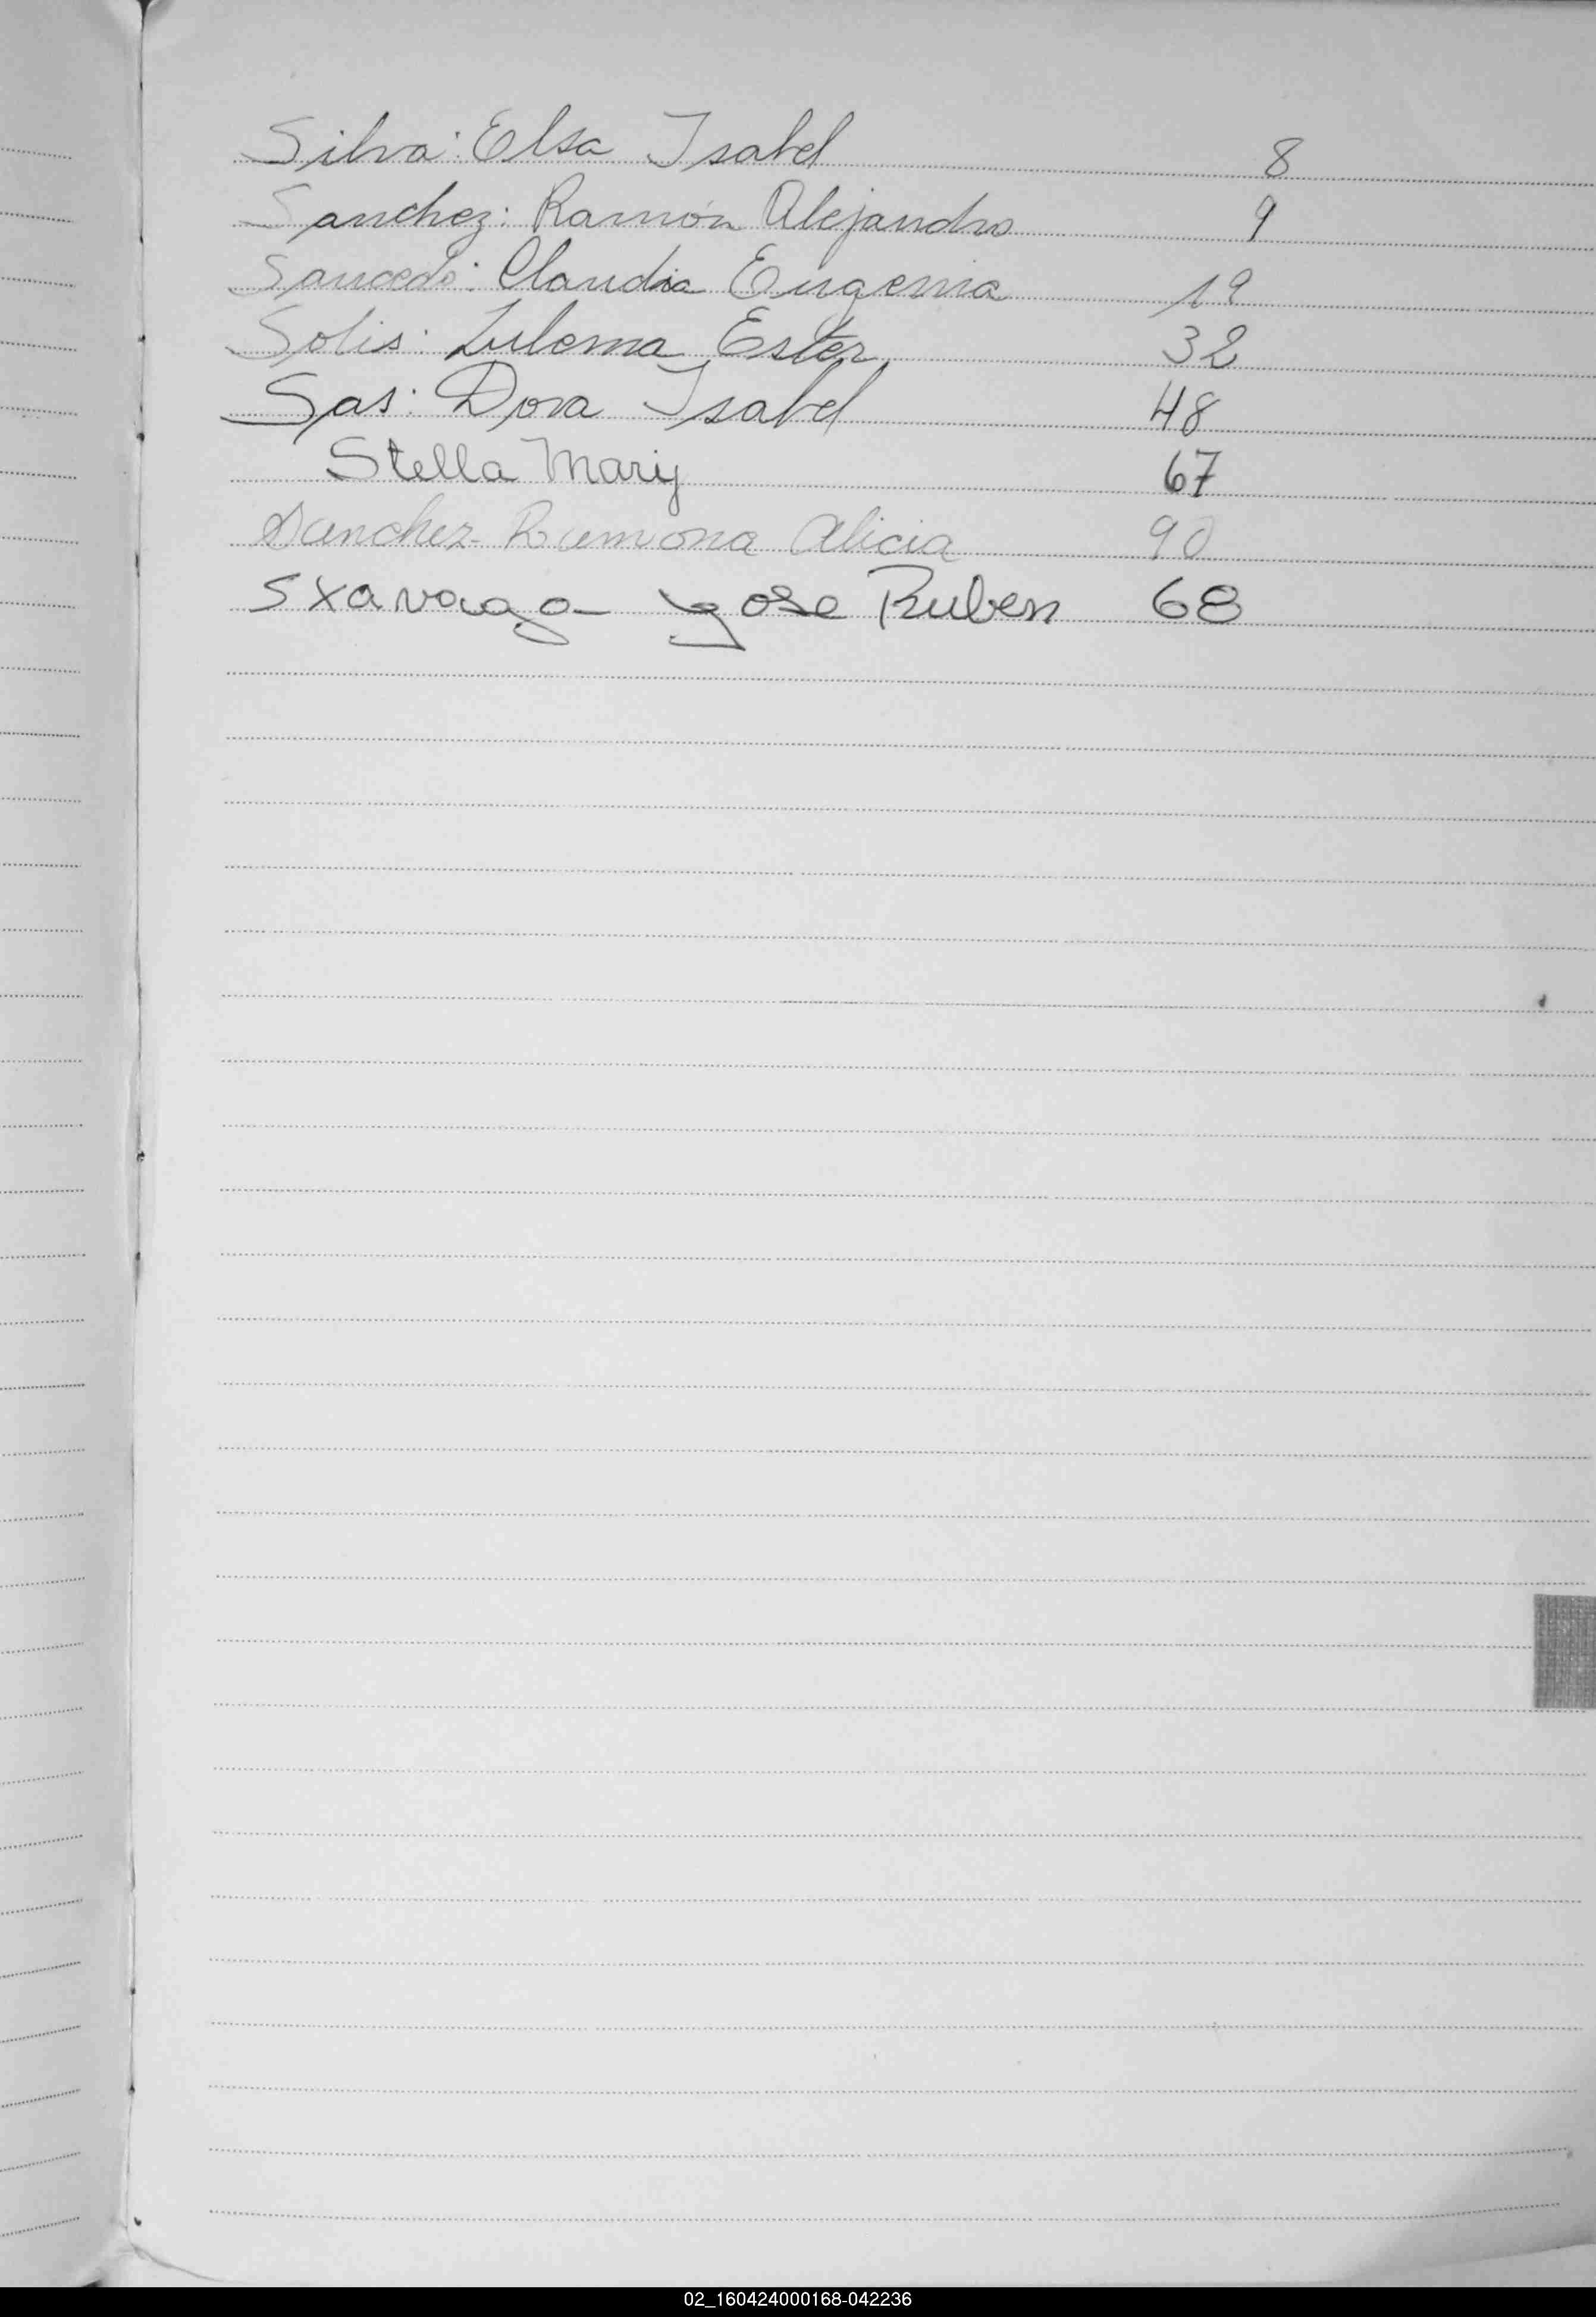 Silva: Elsa Isabel 8
Sanchez: Ramón Alejandro 9
Saucedo: Claudia Eugenia 19
Solis: Zulema Ester 32
Sas: Dora Isabel 48
Stella Mary 67
Sanchez - Ramona Alicia 90
Sxavaga Jose Ruben 68
02_160424000168-042236